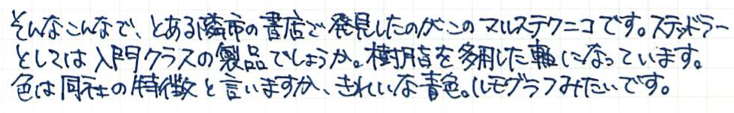 そんなこんなで、とある隣市の書店で発見したのがこのマルステクニコです。ステッドラー
としては入門クラスの製品でしょうか。樹脂を多用した軸になっています。
色は同社の特徴と言いますか、きれいな青色。ルモグラフみたいです。